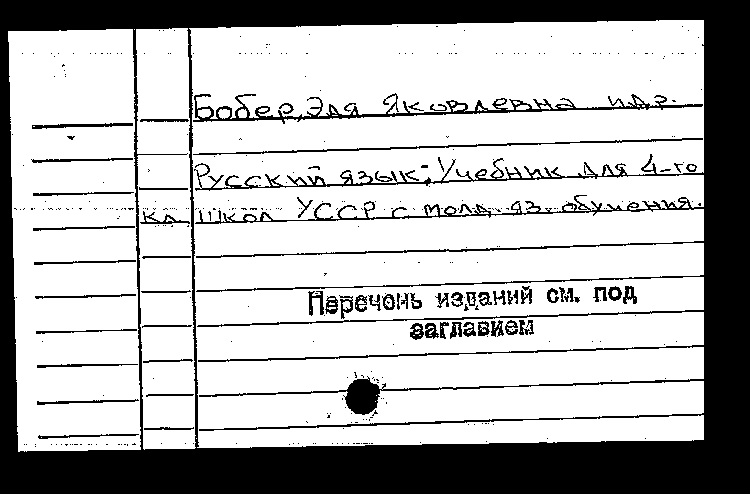 Бобер, Эля Яковлевна и др.
Русский язык: Учебник для 4-го
кл школ УССР с молд. яз. обучения.
Перечень изданий см. под
заглавием